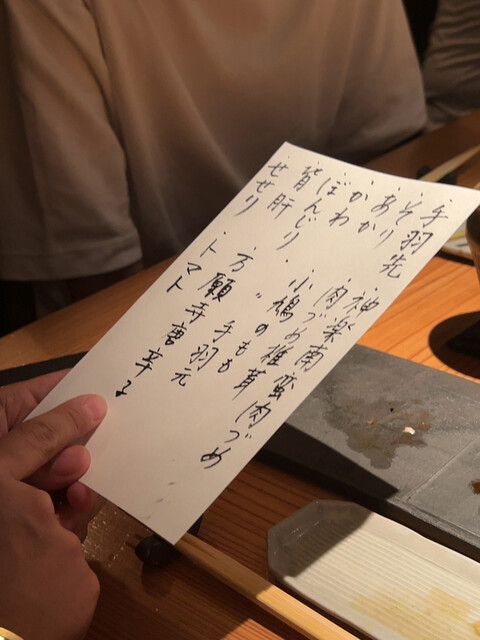 ・手羽先
・そり
・あか
・かわ
・ぼんじり
・背肝
・せせり
・神楽南蛮肉づめ
・肉づめ椎茸
・小鳩のもも
・〃 手羽元
・万願寺唐辛子
・トマト